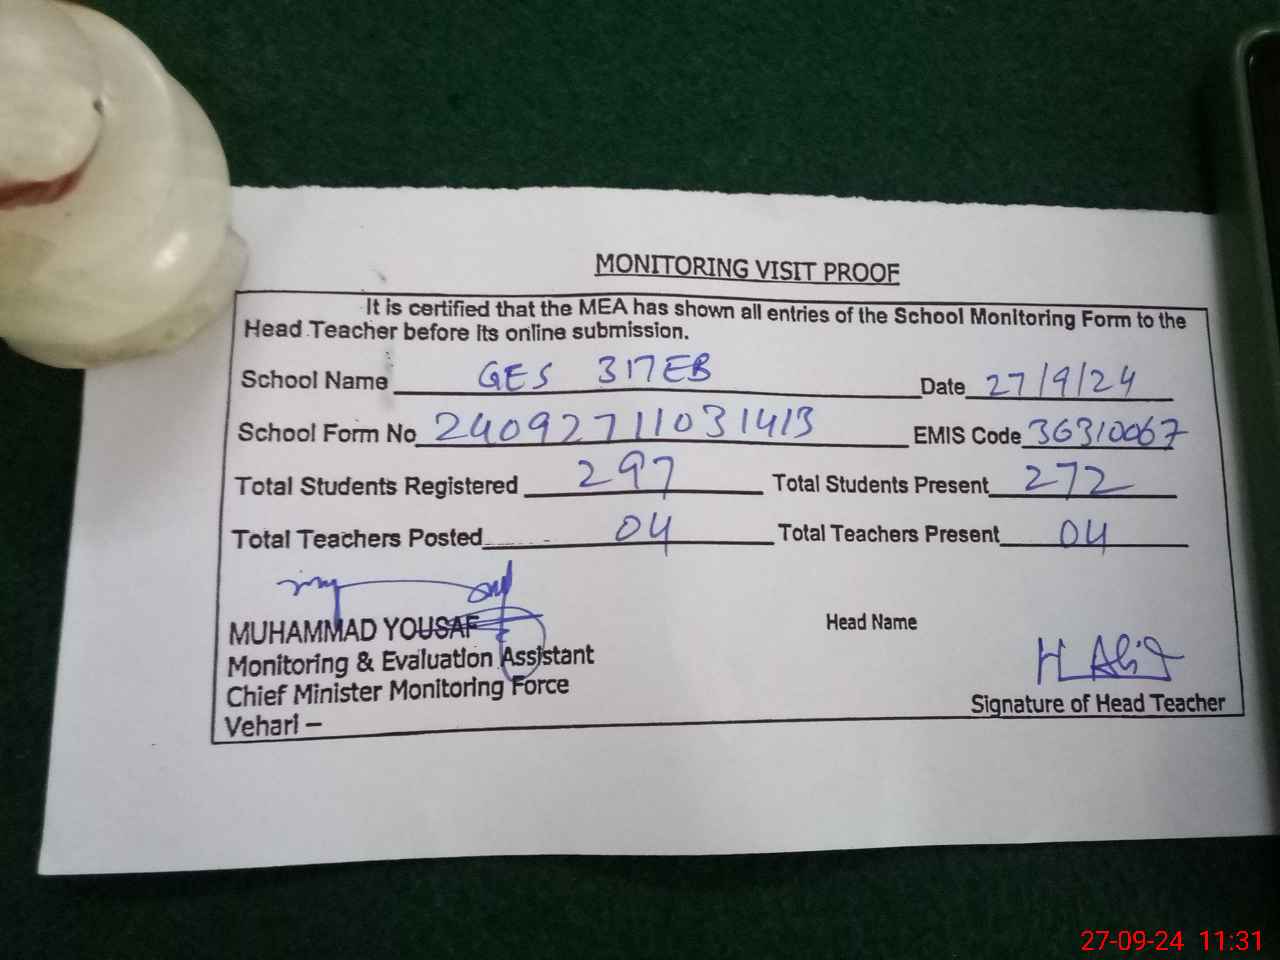 MONITORING VISIT PROOF
It is certified that the MEA has shown all entries of the School Monitoring Form to the
Head Teacher before its online submission.
School Name GES 317EB Date 27/9/24
School Form No 24092711031413 EMIS Code 36310067
Total Students Registered 297 Total Students Present 272
Total Teachers Posted 04 Total Teachers Present 04
MUHAMMAD YOUSAF Head Name
Monitoring & Evaluation Assistant
Chief Minister Monitoring Force
Vehari –
Signature of Head Teacher
27-09-24 11:31